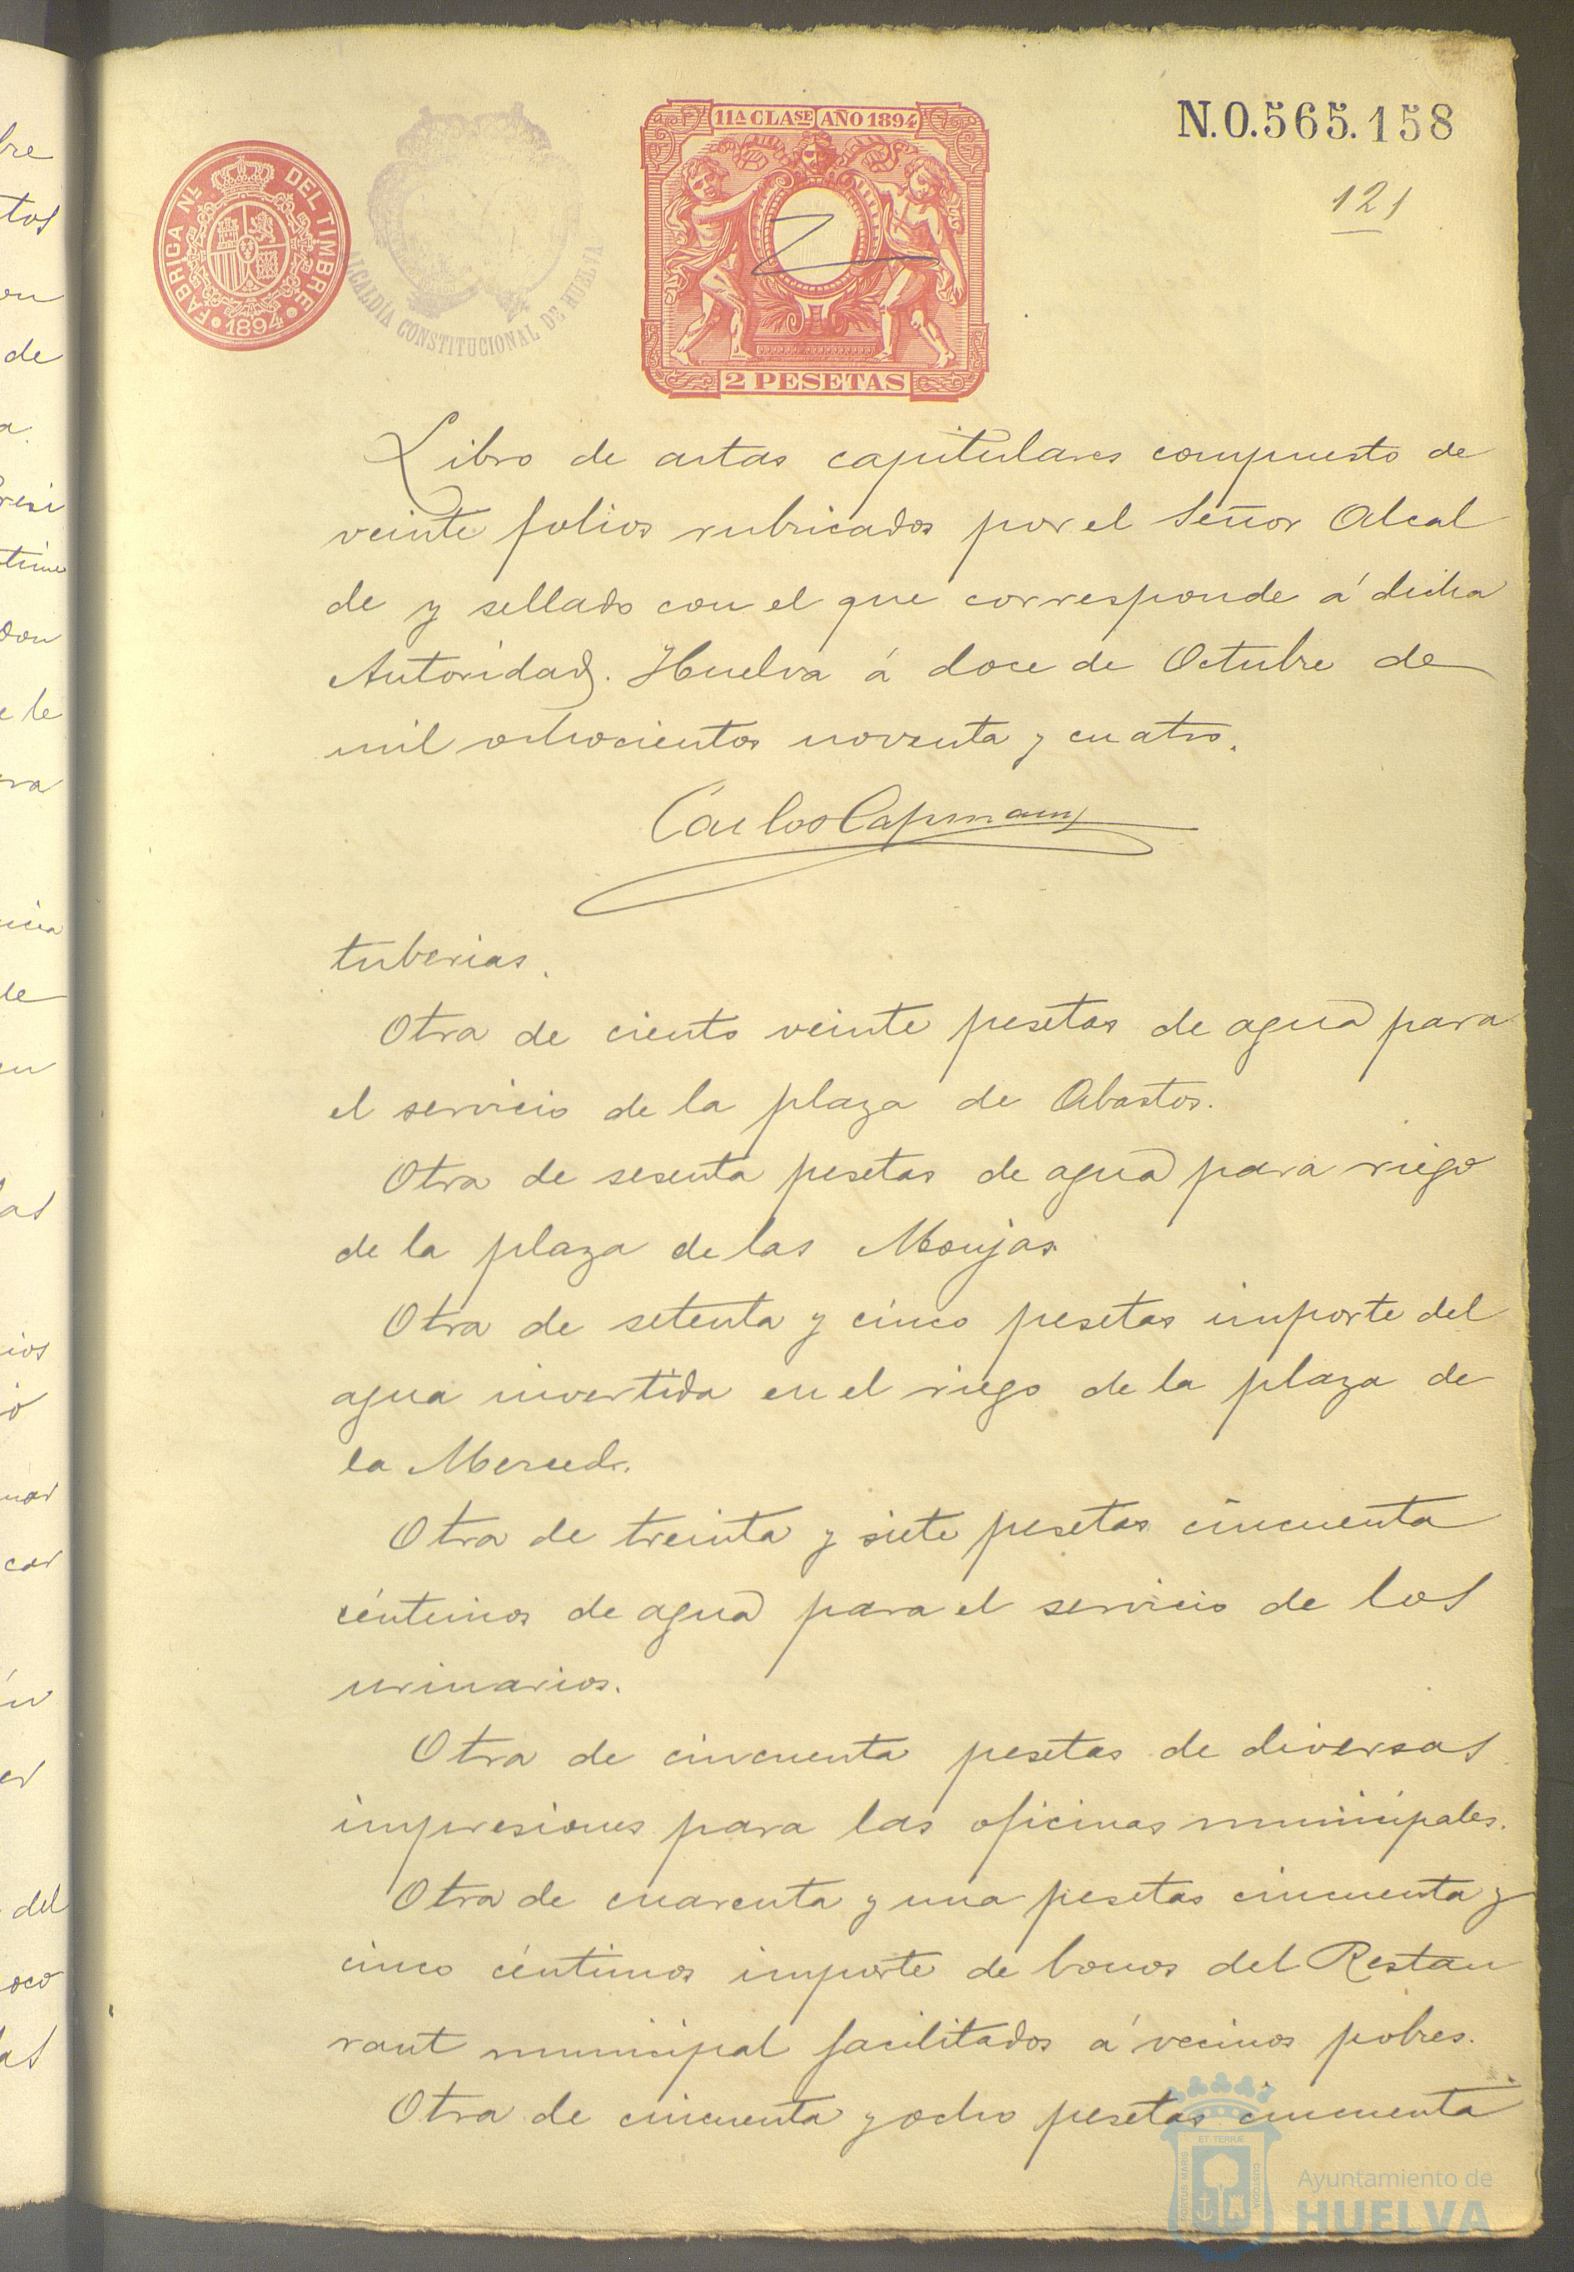 11ª CLASE AÑO 1894
N.0.565.158
FABRICA NL. DEL TIMBRE
1894
ALCALDÍA CONSTITUCIONAL DE HUELVA
121
2 PESETAS
Libro de actas capitulares compuesto de
veinte folios rubricados por el Señor Alcal
de y sellado con el que corresponde á dicha
Autoridad. Huelva á doce de Octubre de
mil ochocientos noventa y cuatro.
Carlos
tuberias.
Otra de ciento veinte pesetas de agua para
el servicio de la plaza de Abastos.
Otra de sesenta pesetas de agua para riego
de la plaza de las Monjas.
Otra de setenta y cinco pesetas importe del
agua invertida en el riego de la plaza de
la Merced.
Otra de treinta y siete pesetas cincuenta
céntimos de agua para el servicio de los
urinarios.
Otra de cincuenta pesetas de diversas
impresiones para las oficinas municipales.
Otra de cuarenta y una pesetas cincuenta y
cinco céntimos importe de bonos del Restau
rant municipal facilitados á vecinos pobres.
Otra de cincuenta y ocho pesetas cincuenta
PORTUS MARIS ET TERRÆ CUSTODIA
Ayuntamiento de
HUELVA